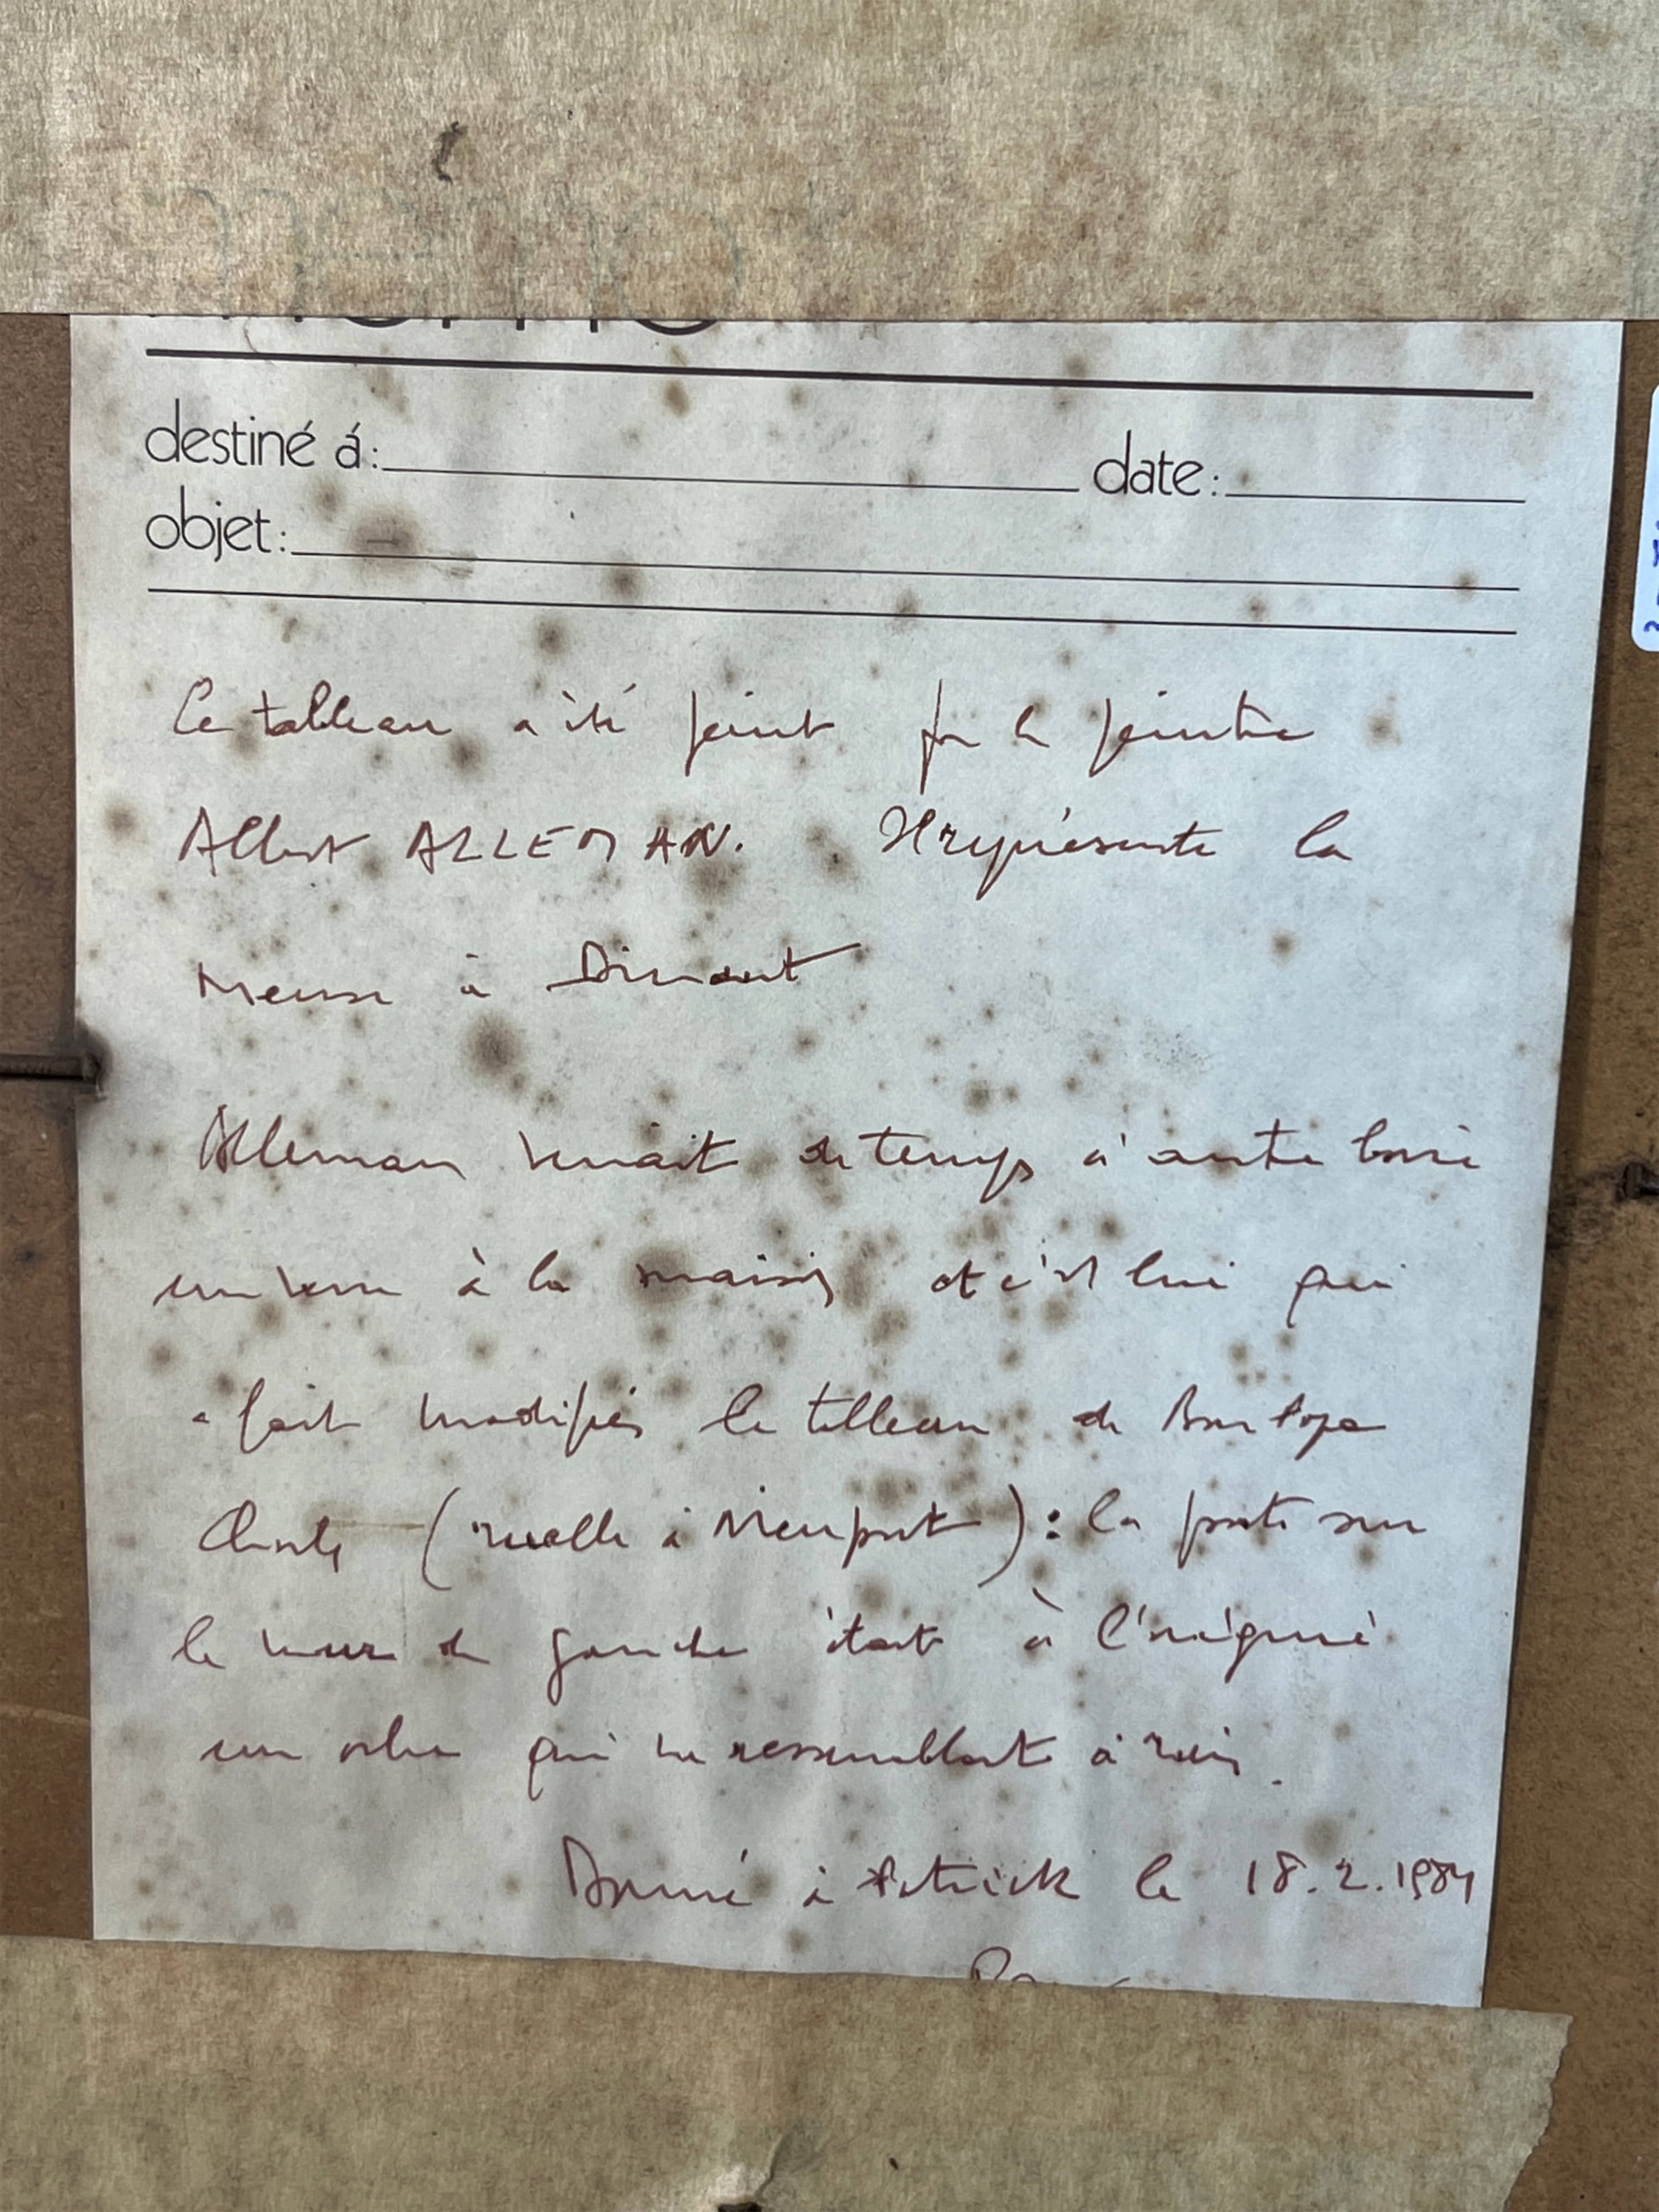 memo
destiné á: date:
objet:
Ce tableau a été peint par le peintre
Albert ALLEMAN. Il représente la
Meuse à Dinant
Alleman venait de temps à autre boire
un verre à la maison et c'est lui qui
a fait modifier le tableau de Bon Papa
Charles (ruelle à Nieuport) : la porte sur
le mur de gauche était à l'origine
un arbre qui ne ressemblait à rien.
Donné à Patrick le 18.2.1984